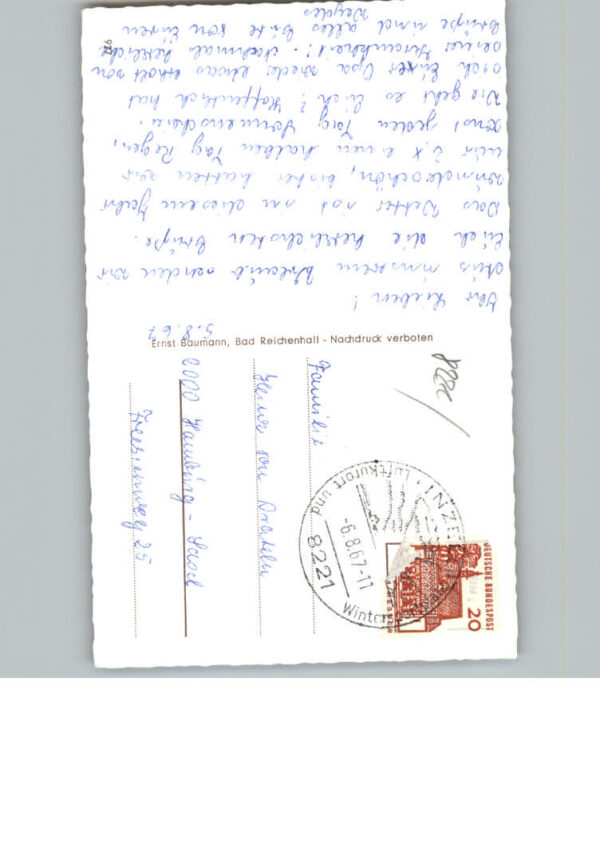 5.8.67
Ihr Lieben!
Aus unserem Urlaub senden wir
Euch die herzlichsten Grüße.
Das Wetter ist in diesem Jahr
wunderschön, bisher hatten wir
nur 2 x einen halben Tag Regen,
sonst jeden Tag Sonnenschein.
Wie geht es Euch? Hoffentlich hat
sich Euer Opa wieder etwas erholt von
seiner Krankheit! Nochmals herzliche
Grüße und alles Gute von Euren
Ernst Baumann, Bad Reichenhall - Nachdruck verboten
Familie
von
2000 Hamburg - Sasel
25
8221 INZELL
Luftkurort und
Winter
-6.8.67-11
DEUTSCHE BUNDESPOST
20